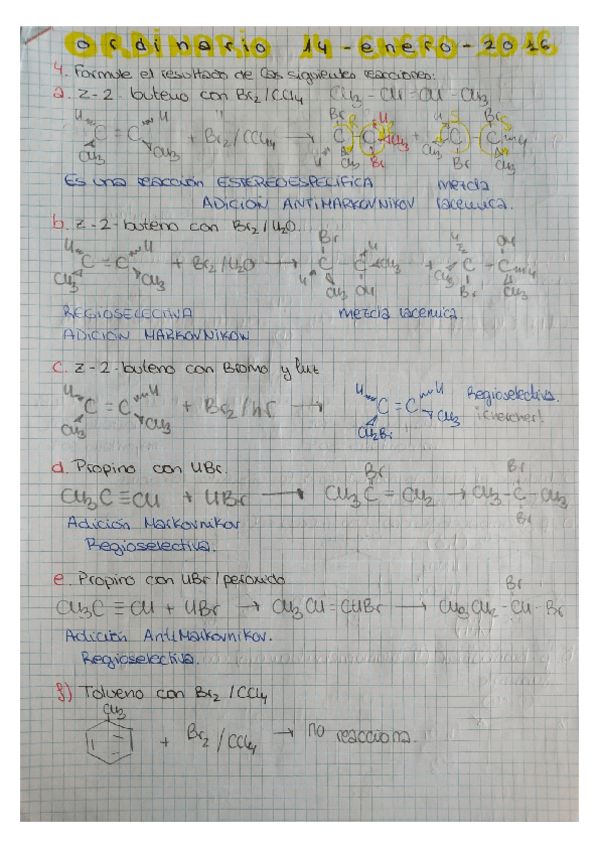 ORDINARIO 14-enero-2016
4. Formule el resultado de las siguientes reacciones:
a. Z-2-buteno con Br2/CCl4 CH3-CH=CH-CH3
C=C H H CH3 CH3 + Br2/CCl4 → Br H C C CH3 H CH3 Br + H Br C C CH3 H Br CH3
Es una reacción ESTEREOESPECÍFICA mezcla
ADICIÓN ANTIMARKOVNIKOV racémica.
b. Z-2-buteno con Br2/H2O
H H C=C CH3 CH3 + Br2/H2O → Br H C C CH3 H CH3 OH + H OH C C H CH3 Br CH3
REGIOSELECTIVA mezcla racémica.
ADICIÓN MARKOVNIKOV
c. Z-2-buteno con Bromo y luz
H H C=C CH3 CH3 + Br2/hν → H H C=C CH2Br CH3 Regioselectiva.
d. Propino con HBr.
CH3C≡CH + HBr → CH3C(Br)=CH2 → CH3-C(Br)(Br)-CH3
Adición Markovnikov
Regioselectiva.
e. Propino con HBr/peróxido
CH3C≡CH + HBr → CH3CH=CHBr → CH3CH2-CH(Br)-Br
Adición AntiMarkovnikov.
Regioselectiva.
f) Tolueno con Br2/CCl4
CH3 + Br2/CCl4 → no reacciona.